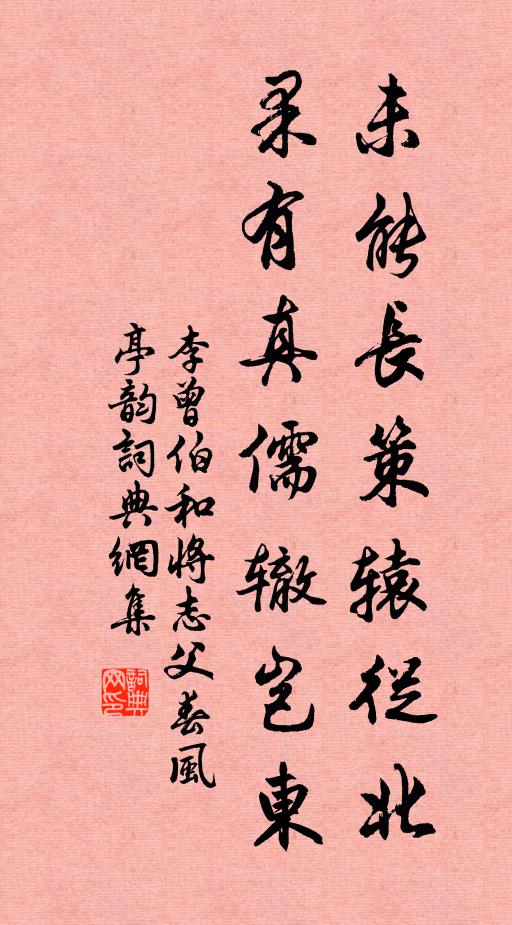 未能長策辕從北
果有真儒辙岂東
李曾伯和將志父春風
亭韵詞典網集
詞典网印